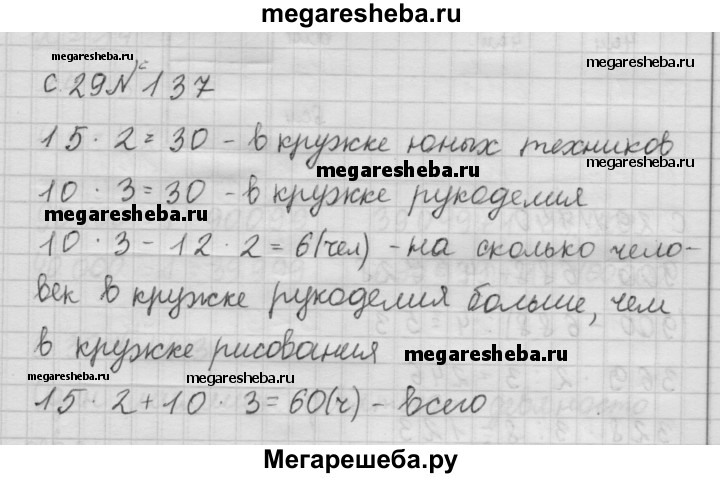 megaresheba.ru
megaresheba.ru
megaresheba.ru
с. 29 № 137
15 · 2 = 30 - в кружке юных техников
megaresheba.ru
megaresheba.ru
10 · 3 = 30 - в кружке рукоделия
megaresheba.ru
10 · 3 - 12 · 2 = 6(чел) - на сколько чело-
век в кружке рукоделия больше, чем
в кружке рисования
megaresheba.ru
megaresheba.ru
megaresheba.ru
15 · 2 + 10 · 3 = 60(ч) - всего
Мегарешеба.ру